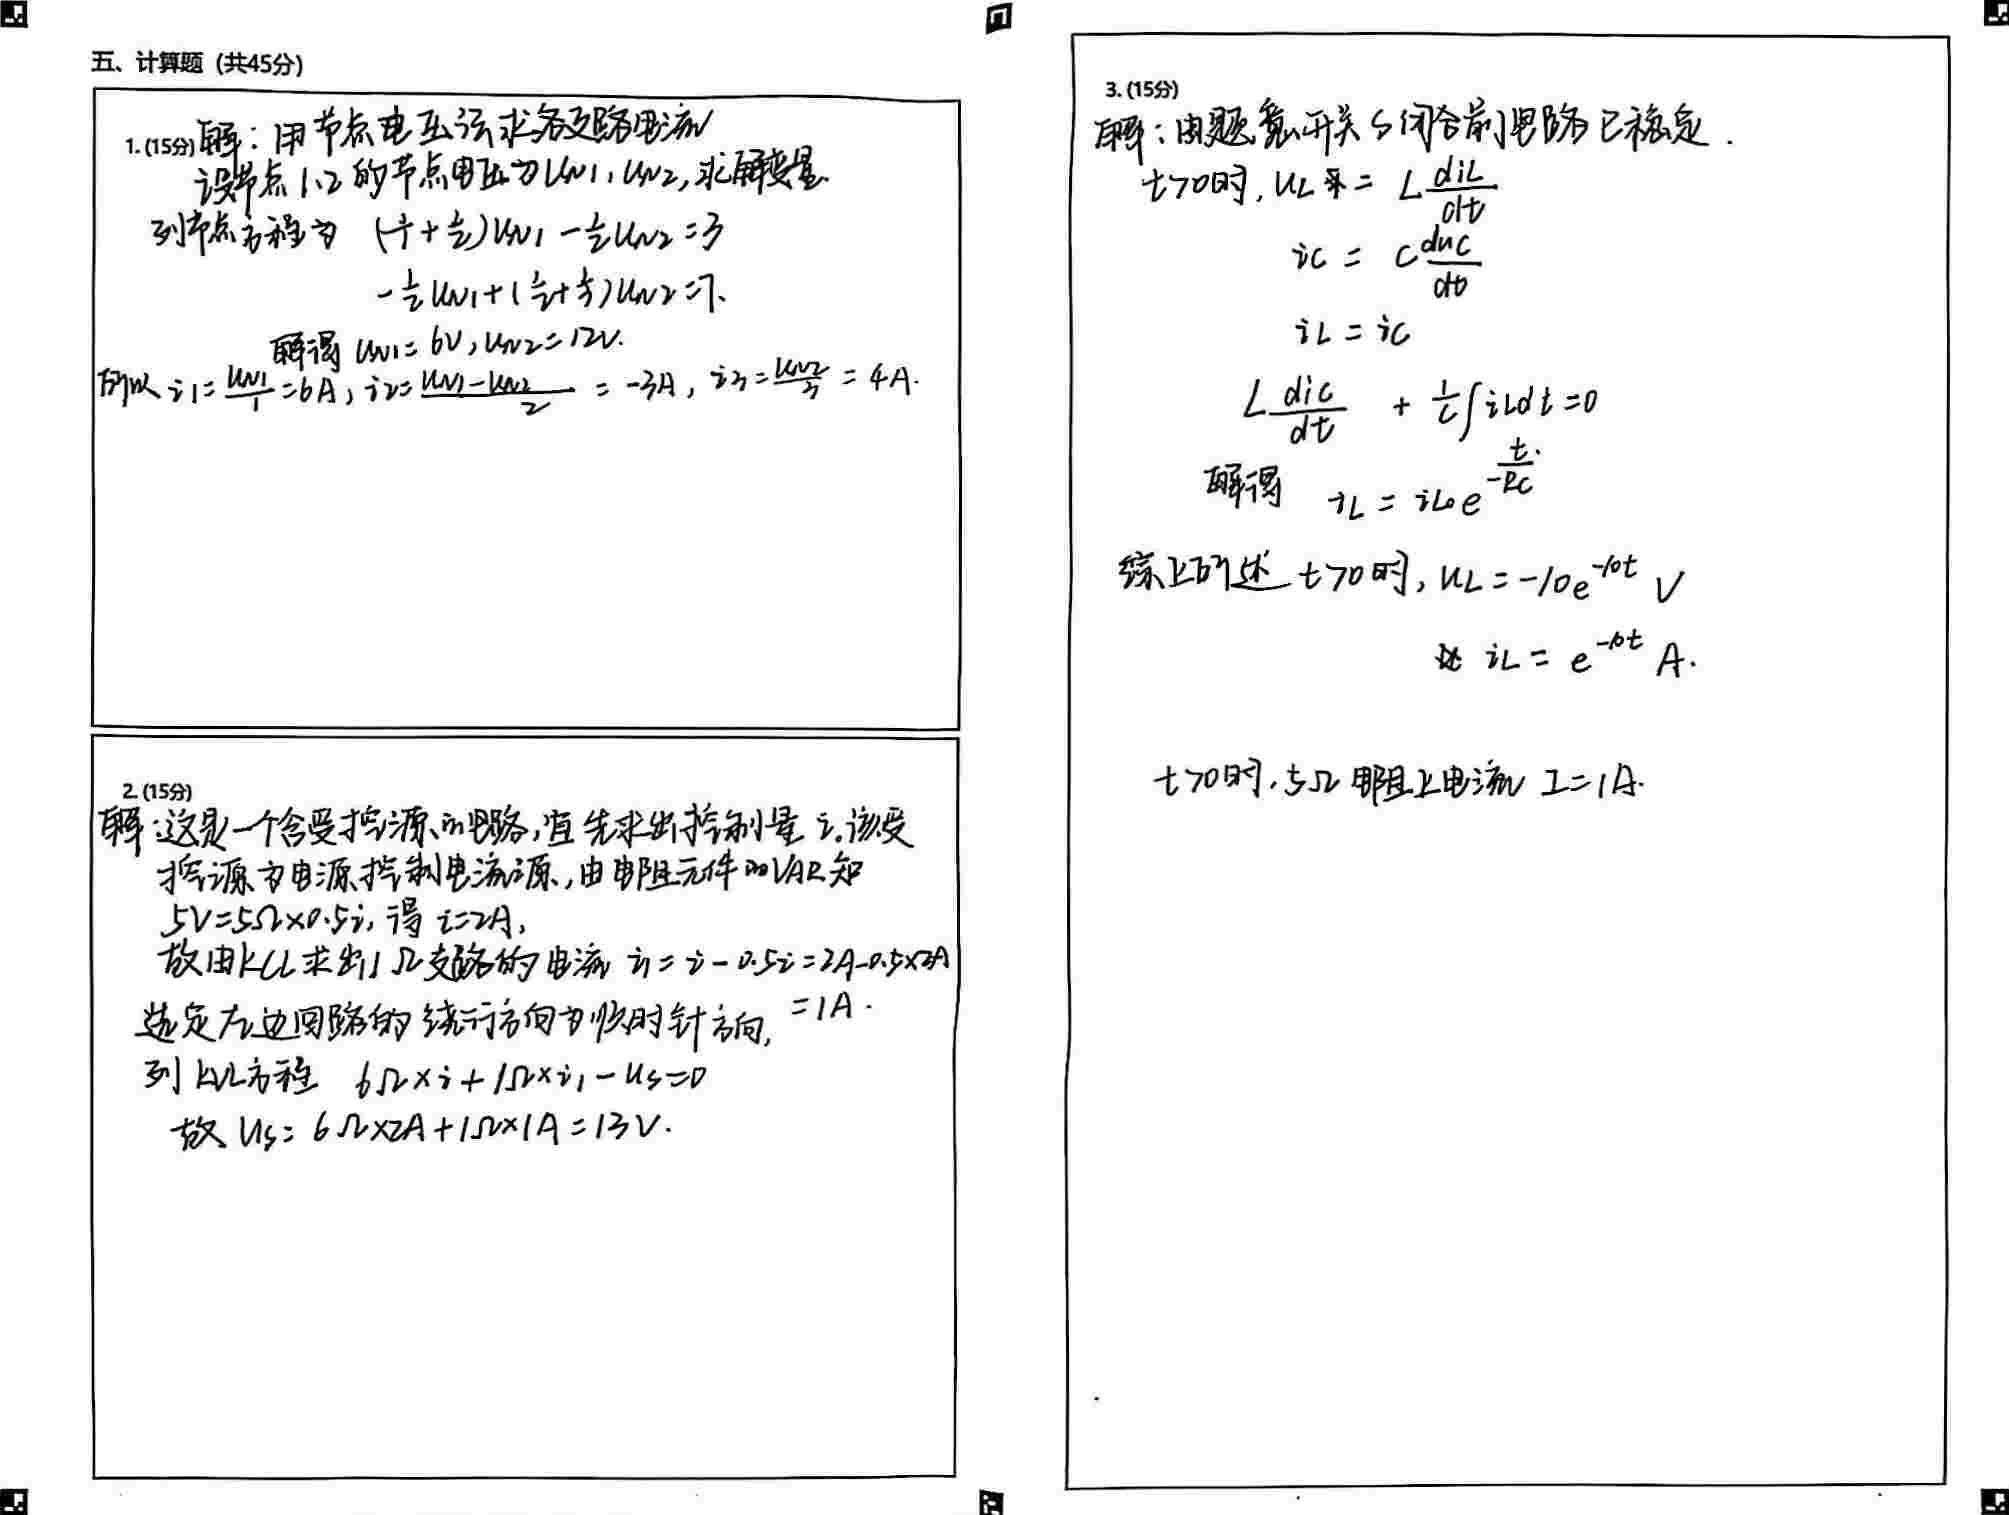 五、计算题 (共45分)
1. (15分) 解：用节点电压法求各支路电流
设节点1、2的节点电压为UN1，UN2，求解变量.
列节点方程为 (1/1 + 1/2)UN1 - 1/2 UN2 = 3
-1/2 UN1 + (1/2 + 1/3)UN2 = 7.
解得 UN1 = 6V，UN2 = 12V.
所以 i1 = UN1/1 = 6A，i2 = (UN1 - UN2)/2 = -3A，i3 = UN2/3 = 4A.
2. (15分)
解：这是一个含受控源的电路，宜先求出控制量 i。该受
控源为电源控制电流源，由电阻元件的VAR知
5V = 5Ω×0.5i，得 i = 2A，
故由KCL求出1Ω支路的电流 i1 = i - 0.5i = 2A - 0.5×2A
= 1A.
选定左边回路的绕行方向为顺时针方向，
列KVL方程 6Ω×i + 1Ω×i1 - us = 0
故 us = 6Ω×2A + 1Ω×1A = 13V.
3. (15分)
解：由题意开关S闭合前电路已稳定.
t>0时，uL = L diL/dt
ic = C duc/dt
iL = ic
L dic/dt + 1/C ∫iLdt = 0
解得 iL = iL0 e^(t/-RC)
综上所述 t>0时，uL = -10e^(-10t) V
iL = e^(-10t) A.
t>0时，5Ω电阻上电流 I = 1A.